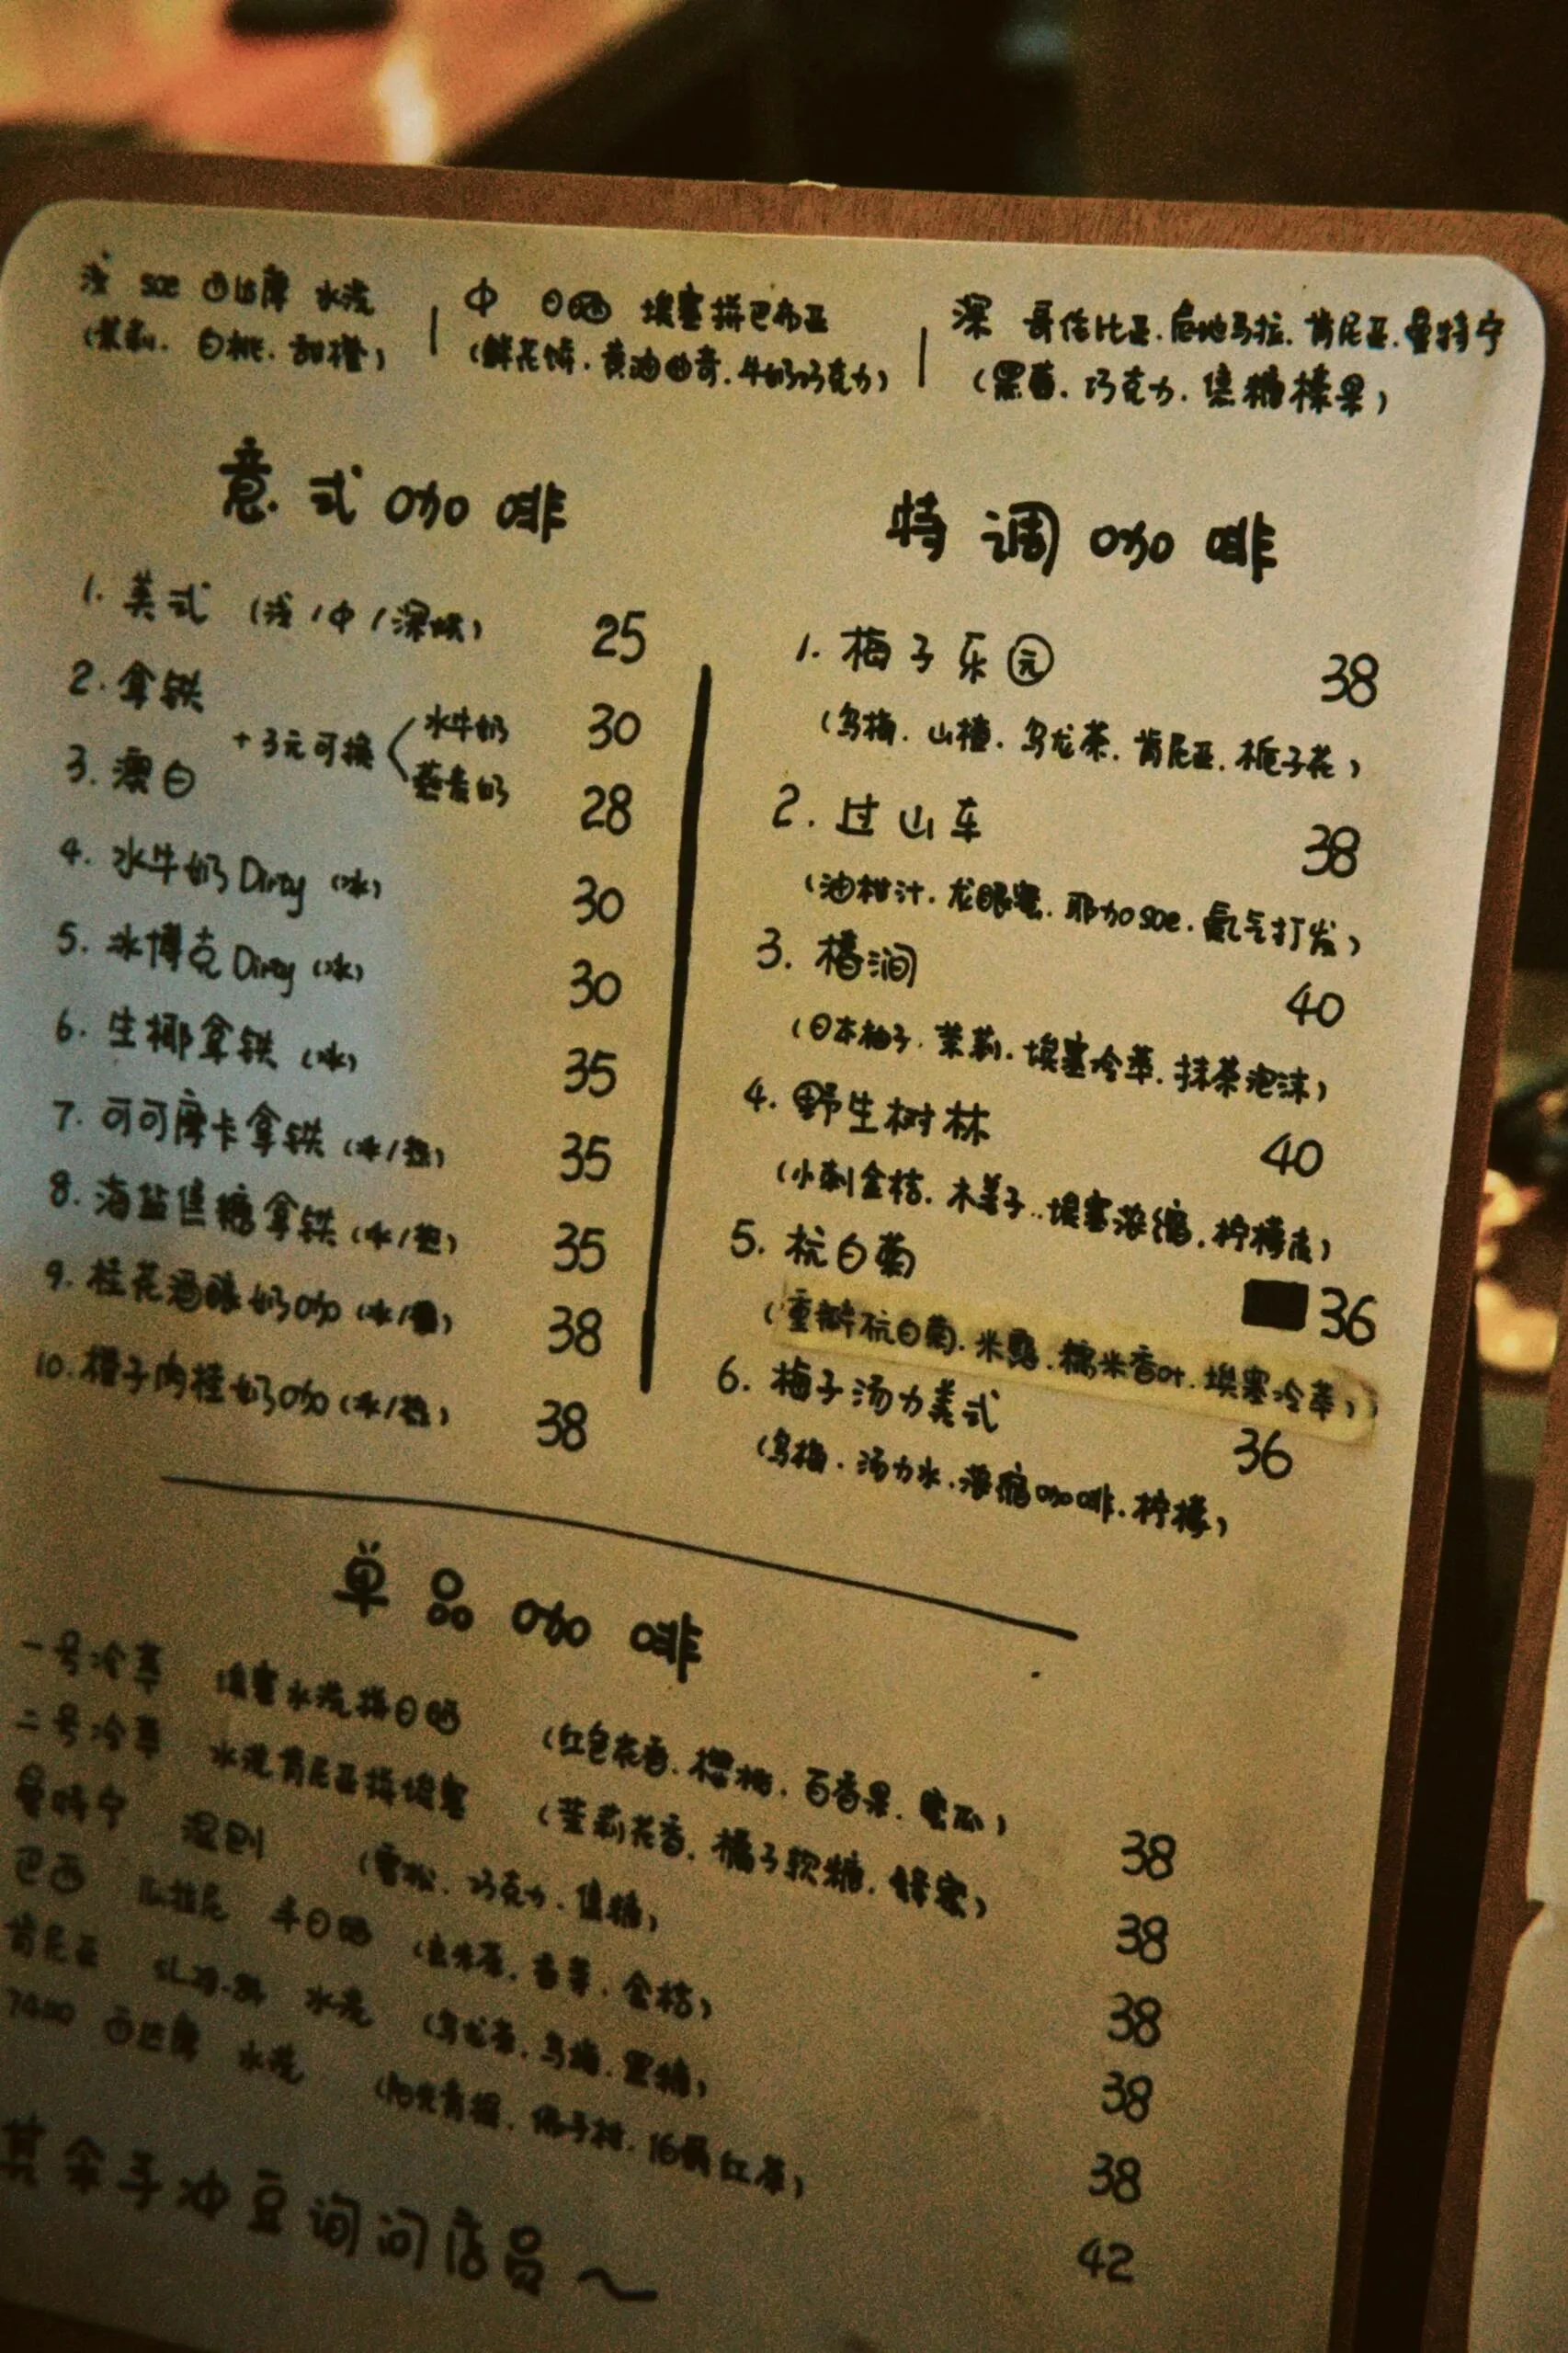 浅 SOE 西达摩 水洗
(茉莉. 白桃. 甜橙)
中 日晒 埃塞拼巴布亚
(鲜花饼. 黄油曲奇. 牛奶巧克力)
深 哥伦比亚. 危地马拉. 肯尼亚. 曼特宁
(黑莓. 巧克力. 焦糖榛果)
意式咖啡
1. 美式 (浅/中/深烘) 25
2. 拿铁 30
3. 澳白 28
+3元可换 水牛奶
燕麦奶
4. 水牛奶Dirty (冰) 30
5. 冰博克Dirty (冰) 30
6. 生椰拿铁 (冰) 35
7. 可可摩卡拿铁 (冰/热) 35
8. 海盐焦糖拿铁 (冰/热) 35
9. 桂花酒酿奶咖 (冰/热) 38
10. 橙子肉桂奶咖 (冰/热) 38
特调咖啡
1. 梅子乐园 38
(乌梅. 山楂. 乌龙茶. 肯尼亚. 栀子花)
2. 过山车 38
(油柑汁. 龙眼蜜. 耶加SOE. 氮气打发)
3. 橘涧 40
(日本柚子. 茉莉. 埃塞冷萃. 抹茶泡沫)
4. 野生树林 40
(小刺金桔. 木姜子.. 埃塞浓缩. 柠檬皮)
5. 杭白菊 36
(重瓣杭白菊. 米露. 糯米香叶. 埃塞冷萃)
6. 梅子汤力美式 36
(乌梅. 汤力水. 浓缩咖啡. 柠檬)
单品咖啡
一号冷萃 埃塞水洗拼日晒 (红色花香. 樱桃. 百香果. 蜜瓜) 38
二号冷萃 水洗肯尼亚拼埃塞 (茉莉花香. 橘子软糖. 蜂蜜) 38
曼特宁 湿刨 (雪松. 巧克力. 焦糖) 38
巴西 半日晒 (玄米茶. 香草. 金桔) 38
肯尼亚 水洗 (乌龙茶. 乌梅. 黑糖) 38
西达摩 水洗 (阳光青提. 佛手柑. 红茶) 42
其余手冲豆询问店员~